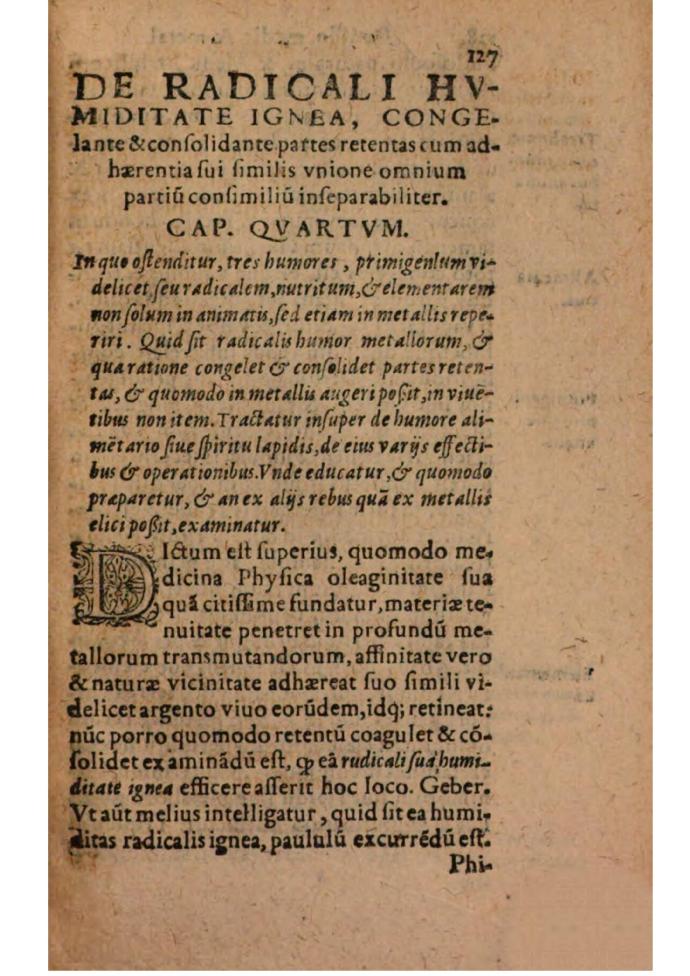 127
DE RADICALI HV-
MIDITATE IGNEA, CONGE-
lante & conſolidante partes retentas cum ad-
hærentia ſui ſimilis vnione omnium
partiū conſimiliū inſeparabiliter.
CAP. QVARTVM.
In quo oſtenditur, tres humores, primigenium vi-
delicet, ſeu radicalem, nutritum, & elementarem
non ſolum in animatis, ſed etiam in metallis repe-
riri. Quid ſit radicalis humor metallorum, &
qua ratione congelet & conſolidet partes reten-
tas, & quomodo in metallis augeri poßit, in viuē-
tibus non item. Tractatur inſuper de humore ali-
mētario ſiue ſpiritu lapidis, de eius varijs effecti-
bus & operationibus. Vnde educatur, & quomodo
præparetur, & an ex alijs rebus quā ex metallis
elici poßit, examinatur.
DIctum eſt ſuperius, quomodo me-
dicina Phyſica oleaginitate ſua
quā citiſſime fundatur, materiæ te-
nuitate penetret in profundū me-
tallorum transmutandorum, affinitate vero
& naturæ vicinitate adhæreat ſuo ſimili vi-
delicet argento viuo eorūdem, idq; retineat:
nūc porro quomodo retentū coagulet & cō-
ſolidet examinādū eſt, ꝙ eā radicali ſua humi-
ditate ignea efficere aſſerit hoc loco. Geber.
Vt aūt melius intelligatur, quid ſit ea humi-
ditas radicalis ignea, paululū excurrēdū eſt.
Phi-